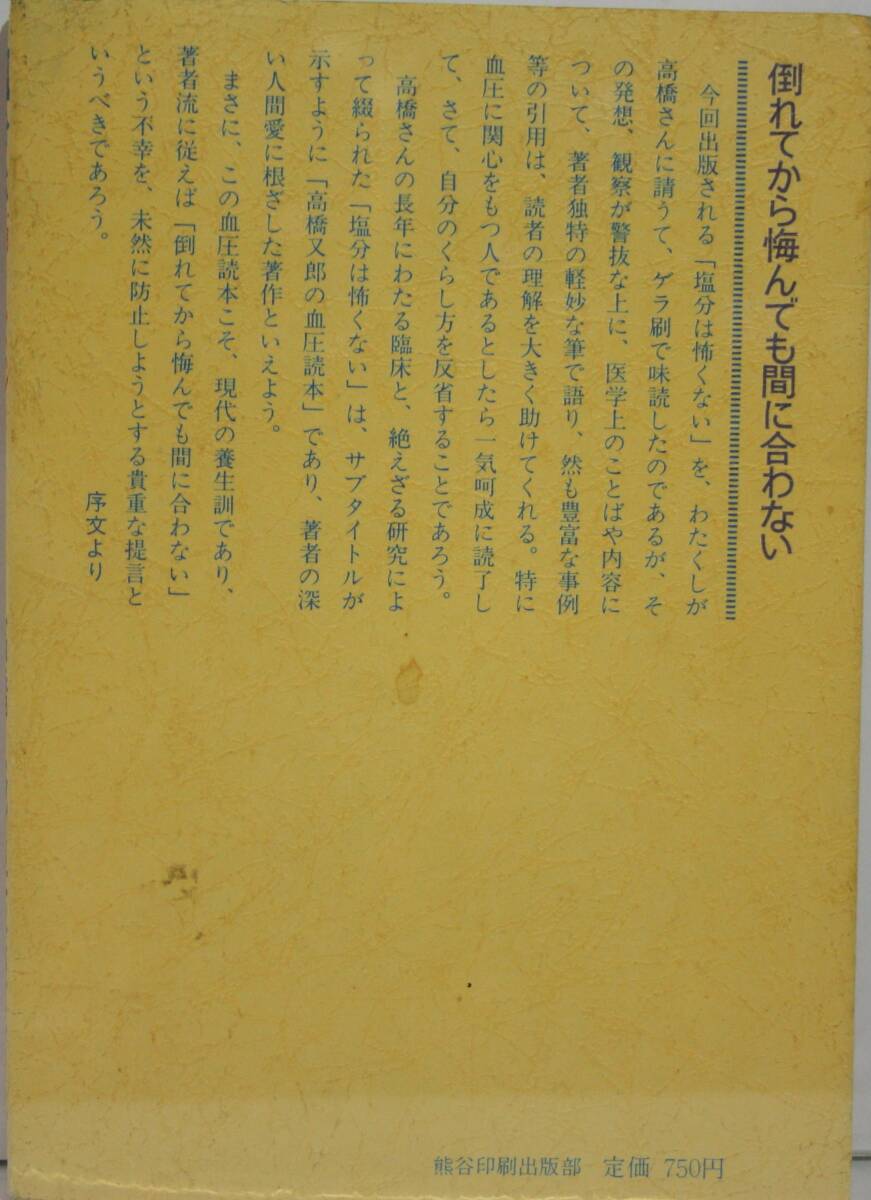 倒れてから悔んでも間に合わない
今回出版される「塩分は怖くない」を、わたくしが
高橋さんに請うて、ゲラ刷で味読したのであるが、そ
の発想、観察が警抜な上に、医学上のことばや内容に
ついて、著者独特の軽妙な筆で語り、然も豊富な事例
等の引用は、読者の理解を大きく助けてくれる。特に
血圧に関心をもつ人であるとしたら一気呵成に読了し
て、さて、自分のくらし方を反省することであろう。
高橋さんの長年にわたる臨床と、絶えざる研究によ
って綴られた「塩分は怖くない」は、サブタイトルが
示すように「高橋又郎の血圧読本」であり、著者の深
い人間愛に根ざした著作といえよう。
まさに、この血圧読本こそ、現代の養生訓であり、
著者流に従えば「倒れてから悔んでも間に合わない」
という不幸を、未然に防止しようとする貴重な提言と
いうべきであろう。
序文より
熊谷印刷出版部 定価 750円